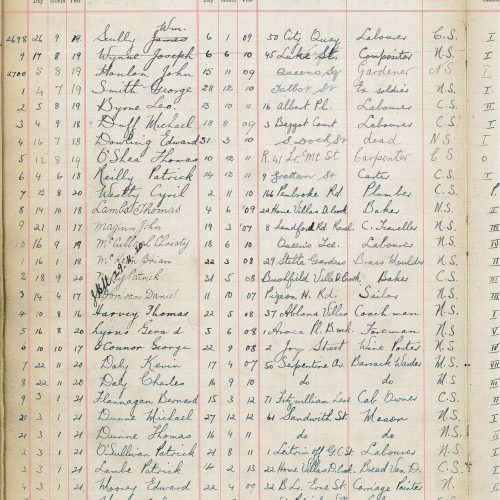 Day Month Year Day Month Year
2698 26 9 19 Scully Wm. James 6 1 09 50 City Quay Labourer C.S. I
9 17 8 19 Wynne Joseph 6 6 10 45 Luke St. Compositor N.S. I
2700 5 8 19 Hanlan John 15 11 09 Queens Sq Gardener N.S. I
1 4 7 19 Smith George 28 12 10 Talbot St Ex soldier N.S. I
2 5 8 19 Byrne Leo 13 10 11 16 Albert Pl. Labourer C.S. I
3 4 9 18 Duff Michael 18 8 09 3 Baggot Court Labourer C.S. I
4 16 7 18 Dowling Edward 31 3 10 S. Dock St dead N.S. I
5 12 8 19 O'Shea Thomas 10 12 11 R. 41 Lr. Mt St Carpenter C S
6 4 6 18 Reilly Patrick 14 12 11 9 Grattan St Carter C.S. I
7 8 20 Cyril 2 11 10 Pembroke Rd Plumber C.S.
8 14 10 18 Lambe Thomas 4 6 '09 22 Home Villas D.brook Baker N.S.
9 21 11 17 Maginn John 19 3 '07 8 Sandford Rd. Ranel. C. Traveller N.S.
10 16 9 19 Christy 18 6 10 Queen's Tce. Labourer N.S.
16 18 Brian 22 3 08 29 Stella Gardens Brass Moulder N.S.
2 18 9 20 Patrick 31 5 08 Beechfield Villa D.brook Baker C.S.
3 14 4 17 Donovan Daniel 11 10 07 Pigeon H. Rd. Sailor N.S.
4 10 8 16 Harvey Thomas 22 5 08 37 Albana Villas Coachman N.S.
5 16 8 20 Lyons Gerard 5 6 08 1 Avoca Pl. B. rock Foreman N.S.
6 10 10 17 O'Connor George 22 9 08 2 Joy Street Wine Porter N.S.
7 22 11 20 Daly Kevin 17 4 07 50 Serpentine Av. Barrack Warder M.S.
8 22 11 20 Daly Charles 16 9 10 do do M.S.
9 3 1 21 Flannagan Bernard 15 3 12 71 Fitzwilliam Lane Cab Owner C.S.
20 3 1 21 Dunne Michael 27 12 12 61 Sandwith St Mason N.S. I
21 3 1 21 Dunne Thomas 16 4 11 do do N.S. I
2 3 1 21 O'Sullivan Patrick 21 8 11 1 Leitrim off G.C. St Labourer N.S. I
3 3 1 21 Lambe Patrick 14 2 13 22 Home Villas D.brook Bread Van D. C.S. I
4 3 1 21 Mooney Edward 22 4 09 32 B Lr. Erne St. Carriage Painter N.S.